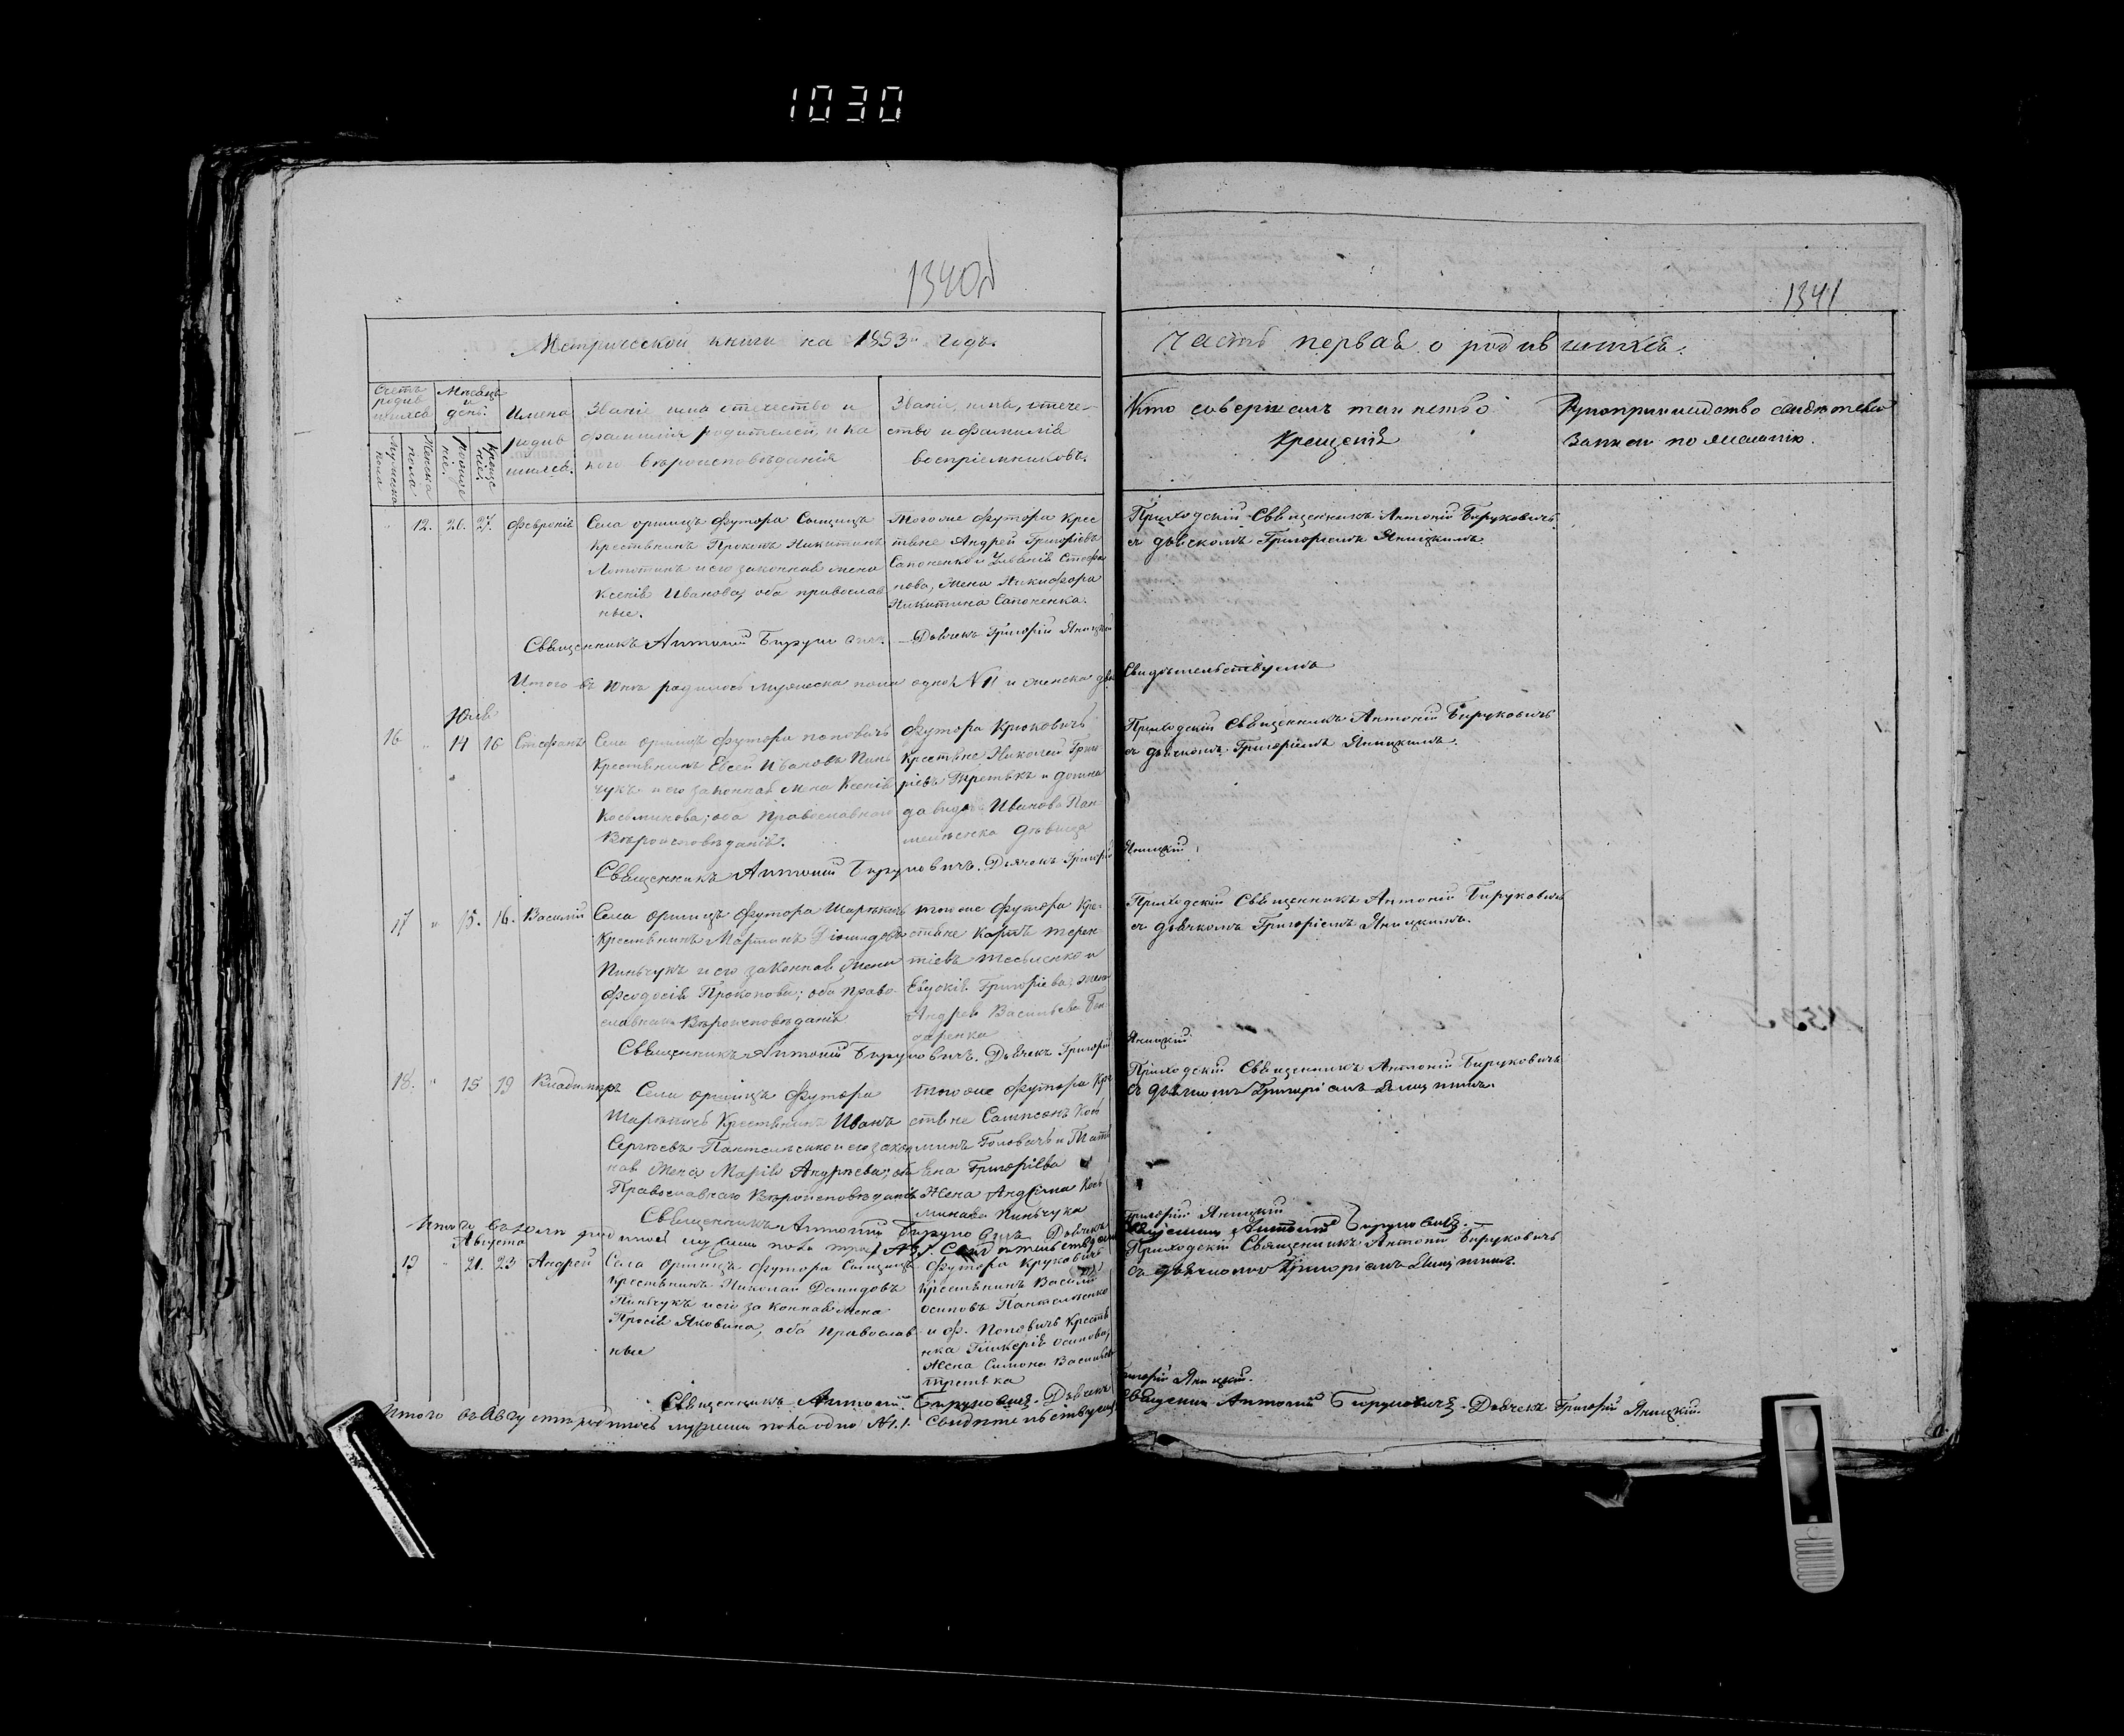 1030
1340
1341
Метрической книги на 1853й годъ.
Часть первая о родившихся.
Счетъ родившихся
Мужеска пола
Женска пола
Месяцъ и день.
Рождение.
Крещение.
Имена родившихся.
Званіе имя отечество и
фамилія родителей, и ка
кого вѣроисповѣданія
Званіе, имя, отече-
ство и фамилія
воспріемниковъ.
Кто совершалъ таинство
Крещенія
Рукоприкладство свидетелей
записи по желанію.
12. 26. 27. Февронія
Села оришцъ футора Сотцицъ
Крестьянинъ Прокопъ Никитинъ
и его законная жена
Ксенія Иванова, оба православ
ные.
Того же футора Крес
тьяне Андрей Григоріевъ
Сапоненко и Уліанія Стефа
нова, жена Никифора
Никитина Сапоненка.
Приходскій Священникъ Антоній Бируковичъ
съ дьячкомъ Григоріемъ Яницкимъ.
Священникъ Антоній Бирукович. Дьячекъ Григорій Яницкій
Итого въ Іюнѣ родилось мужеска пола одно №1 и женска два
Свидѣтельствуемъ
Июля
16 " 14 16 Стефанъ
Села оришцъ футора поповичъ
Крестьянинъ Евсей Ивановъ Пинь
чукъ и его законная жена Ксенія
Косьминова; оба Православнаго
Вѣроисповѣданія.
Футора Крюковичъ
Крестьяне Николай Григо
ріевъ Третякъ и домна
Иванова Пан
телѣенка дѣвица
Приходскій Священникъ Антоній Бируковичъ
съ дьячкомъ Григоріемъ Яницкимъ.
Священникъ Антоній Бируковичъ. Дьячекъ Григорій
Яницкій
17 " 15. 16. Василій
Села оришцъ футора
Крестьянинъ Мартинъ Діомидовъ
Пиньчукъ и его законная жена
Феодосія Прокопова; оба право-
славнаго Вѣроисповѣданія
того же футора Кре-
стьяне Карпъ терен
тіевъ и
Евдокія Григоріева, жена
Андрея Василева Бон
даренка
Приходскій Священникъ Антоній Бируковичъ
съ дьячкомъ Григоріемъ Яницкимъ.
Священникъ Антоній Бируковичъ. Дьячекъ Григорій
Яницкій
18. " 15 19 Владимиръ
Села оришцъ футора
Крестьянинъ Иванъ
Сергѣевъ Пантелѣенко и его закон
ная жена Марія Андрѣева; оба
Православнаго Вѣроисповѣданія
того же футора Кре
стьяне Сампсонъ Кось
минъ Головачъ и Тать
яна Григоріева
жена Андрея Кось
минова Пиньчука
Приходскій Священникъ Антоній Бируковичъ
съ дьячкомъ Григоріемъ Яницкимъ.
Священникъ Антоній Бируковичъ Дьячекъ
Григорій Яницкій
Итого въ Іюлѣ родилось мужеска пола трое №3. Свидѣтельствуемъ
Священникъ Антоній Бируковичъ.
Августа
19 " 21. 23 Андрей
Села Оришцъ футора Сотцицъ
крестьянинъ Николай Демидовъ
Пиньчукъ и его законная жена
Яковина, оба Православ
ные
Футора Круковичъ
крестьянинъ Василій
Осиповъ Пантелѣенко
и ф. Поповичъ Крестья
нка Гликерія осипова,
жена Симона Василева
третяка
Приходскій Священникъ Антоній Бируковичъ
съ дьячкомъ Григоріемъ Яницкимъ.
Священникъ Антоній Бируковичъ. Дьячекъ
Григорій Яницкій.
Итого въ Августѣ родилось мужеска пола одно №1. Свидѣтельствуемъ
Священникъ Антоній Бируковичъ. Дьячекъ Григорій Яницкій.